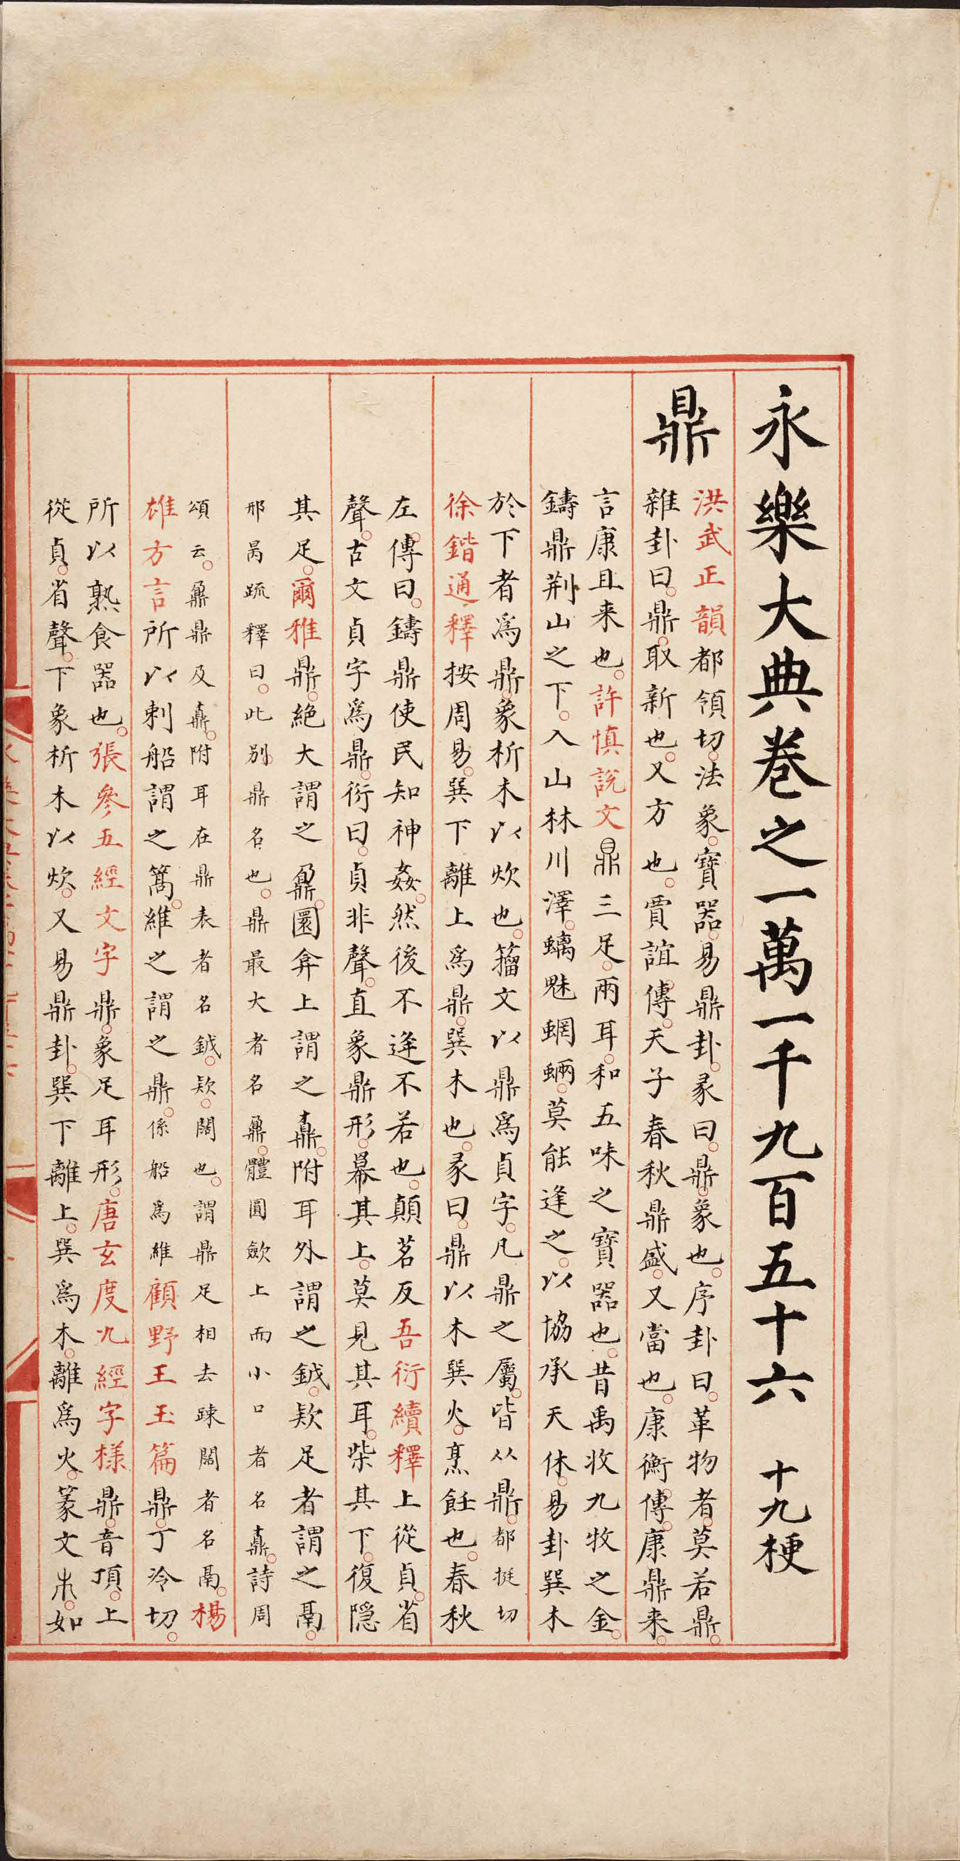 永樂大典卷之一萬一千九百五十六 十九梗
鼎
洪武正韻都領切。法象。寶器。易鼎卦。彖曰。鼎。象也。序卦曰。革物者。莫若鼎。
雜卦曰。鼎。取新也。又方也。賈誼傳。天子春秋鼎盛。又當也。康衡傳。康鼎来。
言康且来也。許慎說文鼎三足。兩耳。和五味之寶器也。昔禹收九牧之金。
鑄鼎荆山之下。入山林川澤。螭魅蝄蜽。莫能逢之。以協承天休。易卦巽木
於下者為鼎。象析木以炊也。籀文以鼎為貞字。凡鼎之屬。皆从鼎。都挺切
徐鍇通釋按周易。巽下離上為鼎。巽木也。彖曰。鼎以木巽火。烹飪也。春秋
左。傳曰。鑄鼎使民知神姦。然後不逢不若也。顛茗反吾衍續釋上從貞。省
聲。古文貞字為鼎。衍曰。貞非聲。直象鼎形。幕其上。莫見其耳。柴其下。復隠
其足。爾雅鼎。絶大謂之鼐。圜弇上謂之鼒。附耳外謂之釴。欵足者謂之鬲。
邢昺疏釋曰。此别鼎名也。鼎最大者名鼐。體圓歛上而小口者名鼒。詩周
頌云。鼐鼎及鼒。附耳在鼎表者名釴。欵。闊也。謂鼎足相去踈闊者名鬲。楊
雄方言所以刺船謂之篙。維之謂之鼎。係船為維顧野王玉篇鼎。丁冷切。
所以熟食器也。張參五經文字鼎。象足耳形。唐玄度九經字様鼎。音頂。上
從貞。省聲。下象析木以炊。又易鼎卦。巽下離上。巽為木。離為火。篆文如